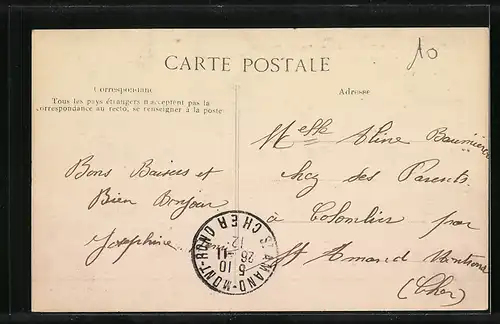 10
CARTE POSTALE
Correspondance
Tous les pays étrangers n'acceptent pas la
correspondance au recto, se renseigner à la poste
Adresse
Melle Aline
chez ses Parents
à Colombier par
St Amand Montrond
(Cher)
Bons Baisers et
Bien Bonjour
Joséphine
ST-AMAND-MONT-ROND
CHER
5 10
26 -11
12